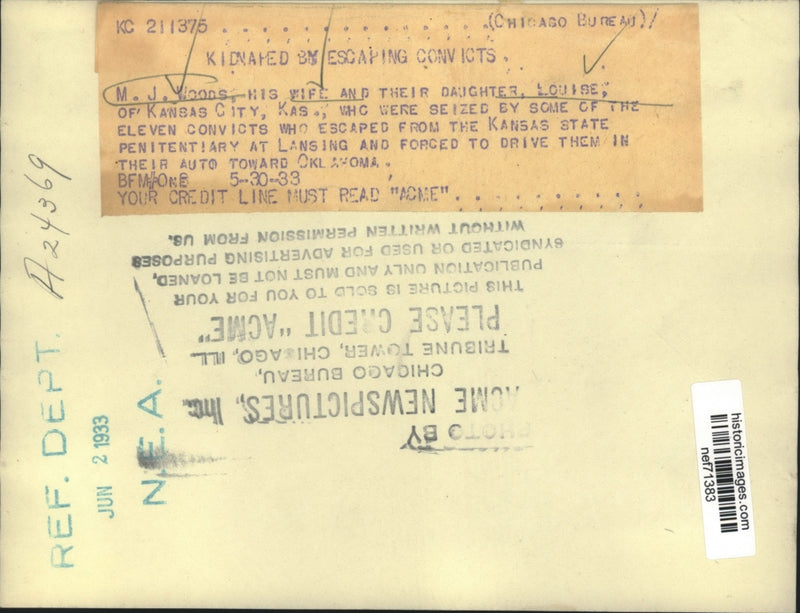 KC 211375 . . . . . . . . . . . . . . . (CHICAGO BUREAU)/
KIDNAPED BY ESCAPING CONVICTS.
M. J. WOODS, HIS WIFE AND THEIR DAUGHTER, LOUISE,
OF KANSAS CITY, KAS., WHO WERE SEIZED BY SOME OF THE
ELEVEN CONVICTS WHO ESCAPED FROM THE KANSAS STATE
PENITENTIARY AT LANSING AND FORCED TO DRIVE THEM IN
THEIR AUTO TOWARD OKLAHOMA.
5-30-33
YOUR CREDIT LINE MUST READ "ACME". . . . . . . . . . .
A24369
REF. DEPT.
JUN 2 1933
N.E.A.
PHOTO BY
ACME NEWSPICTURES, Inc.
CHICAGO BUREAU,
TRIBUNE TOWER, CHICAGO, ILL.
PLEASE CREDIT "ACME"
THIS PICTURE IS SOLD TO YOU FOR YOUR
PUBLICATION ONLY AND MUST NOT BE LOANED,
SYNDICATED OR USED FOR ADVERTISING PURPOSES
WITHOUT WRITTEN PERMISSION FROM US.
historicimages.com
nef71383